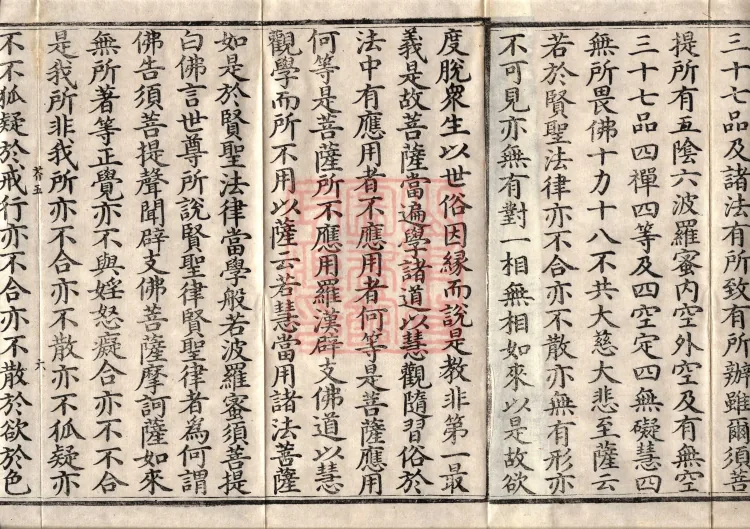 三十七品及諸法有所致有所辦雖爾須菩
提所有五陰六波羅蜜內空外空及有無空
三十七品四禪四等及四空定四無礙慧四
無所畏佛十力十八不共大慈大悲至薩云
若於賢聖法律亦不合亦不散亦無有形亦
不可見亦無有對一相無相如來以是故欲
度脫眾生以世俗因緣而說是教非第一最
義是故菩薩當遍學諸道以慧觀隨習俗於
法中有應用者不應用者何等是菩薩應用
何等是菩薩所不應用羅漢辟支佛道以慧
觀學而所不用以薩云若慧當用諸法菩薩
如是於賢聖法律當學般若波羅蜜須菩提
白佛言世尊所說賢聖律賢聖律者為何謂
佛告須菩提聲聞辟支佛菩薩摩訶薩如來
無所著等正覺亦不與婬怒癡合亦不不合
是我所非我所亦不合亦不散亦不狐疑亦
不不狐疑於戒行亦不合亦不散於欲於色
六